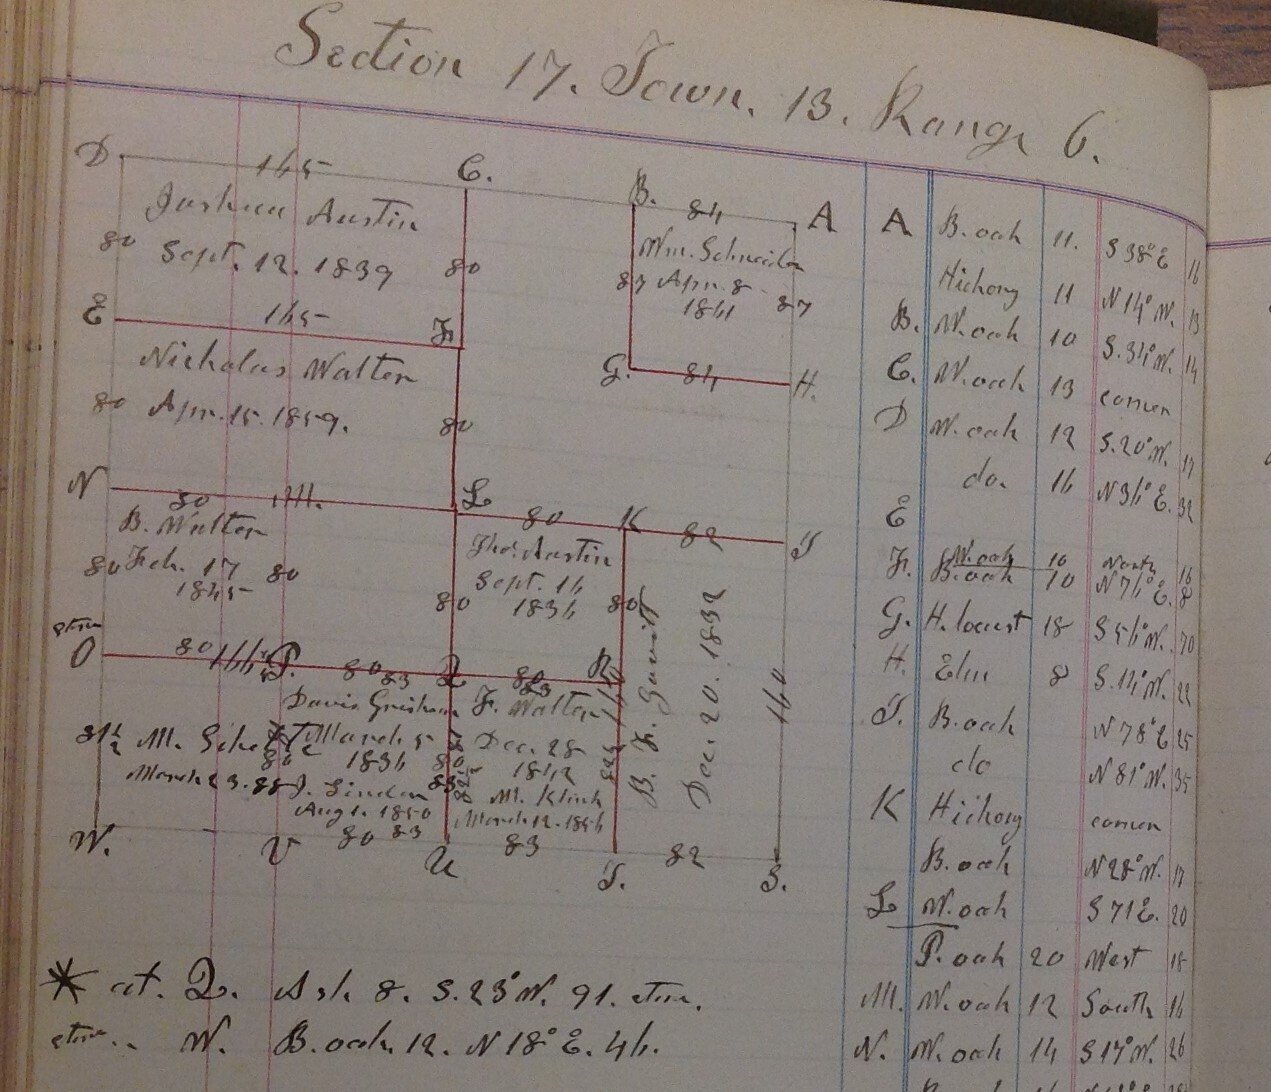 Section 17. Town. 13. Range 6.
D 165 C. B. 84 A
Joshua Austin
80 Sept. 12. 1839 80
Wm. Schneider
87 Apr. 8 87
1841
E 165 F.
G. 84 H.
Nicholas Walter
80 Apr. 15. 1859. 80
N 80 M. L 80 K 82 I
B. Walter
80 Feb. 17 80
1845
Thos. Austin
Sept. 16
80 1836 80
B. F. Gavit
Dec. 20. 1832
160
O 80 P. 80 83 Q 80 83 R
Davis Grisham
March 5
1836
J. Linder
Aug 1. 1850
F. Walter
Dec. 28
1842
M. Klink
March 12. 1856
M.
March 23.
W. V 80 83 U 83 T. 82 S.
* at. Q. Ash. 8. S. 23° W. 91.
W. B. oak. 12. N 18° E. 46.
A B. oak 11. S 38° E 16
Hickory 11 N 14° W. 13
B. W. oak 10 S. 34° W. 14
C. W. oak 13 corner
D W. oak 12 S. 20° W. 17
do. 16 N 36° E. 32
E
W. oak 10 North 16
F. B. oak 10 N 76° E. 8
G. H. locust 18 S 56° W. 70
H. Elm 8 S. 14° W. 22
I. B. oak N 78° E 25
do N 81° W. 35
K Hickory corner
B. oak N 28° W. 17
L W. oak S 71 E. 20
P. oak 20 West 18
M. W. oak 12 South 16
N. W. oak 14 S 17° W. 26